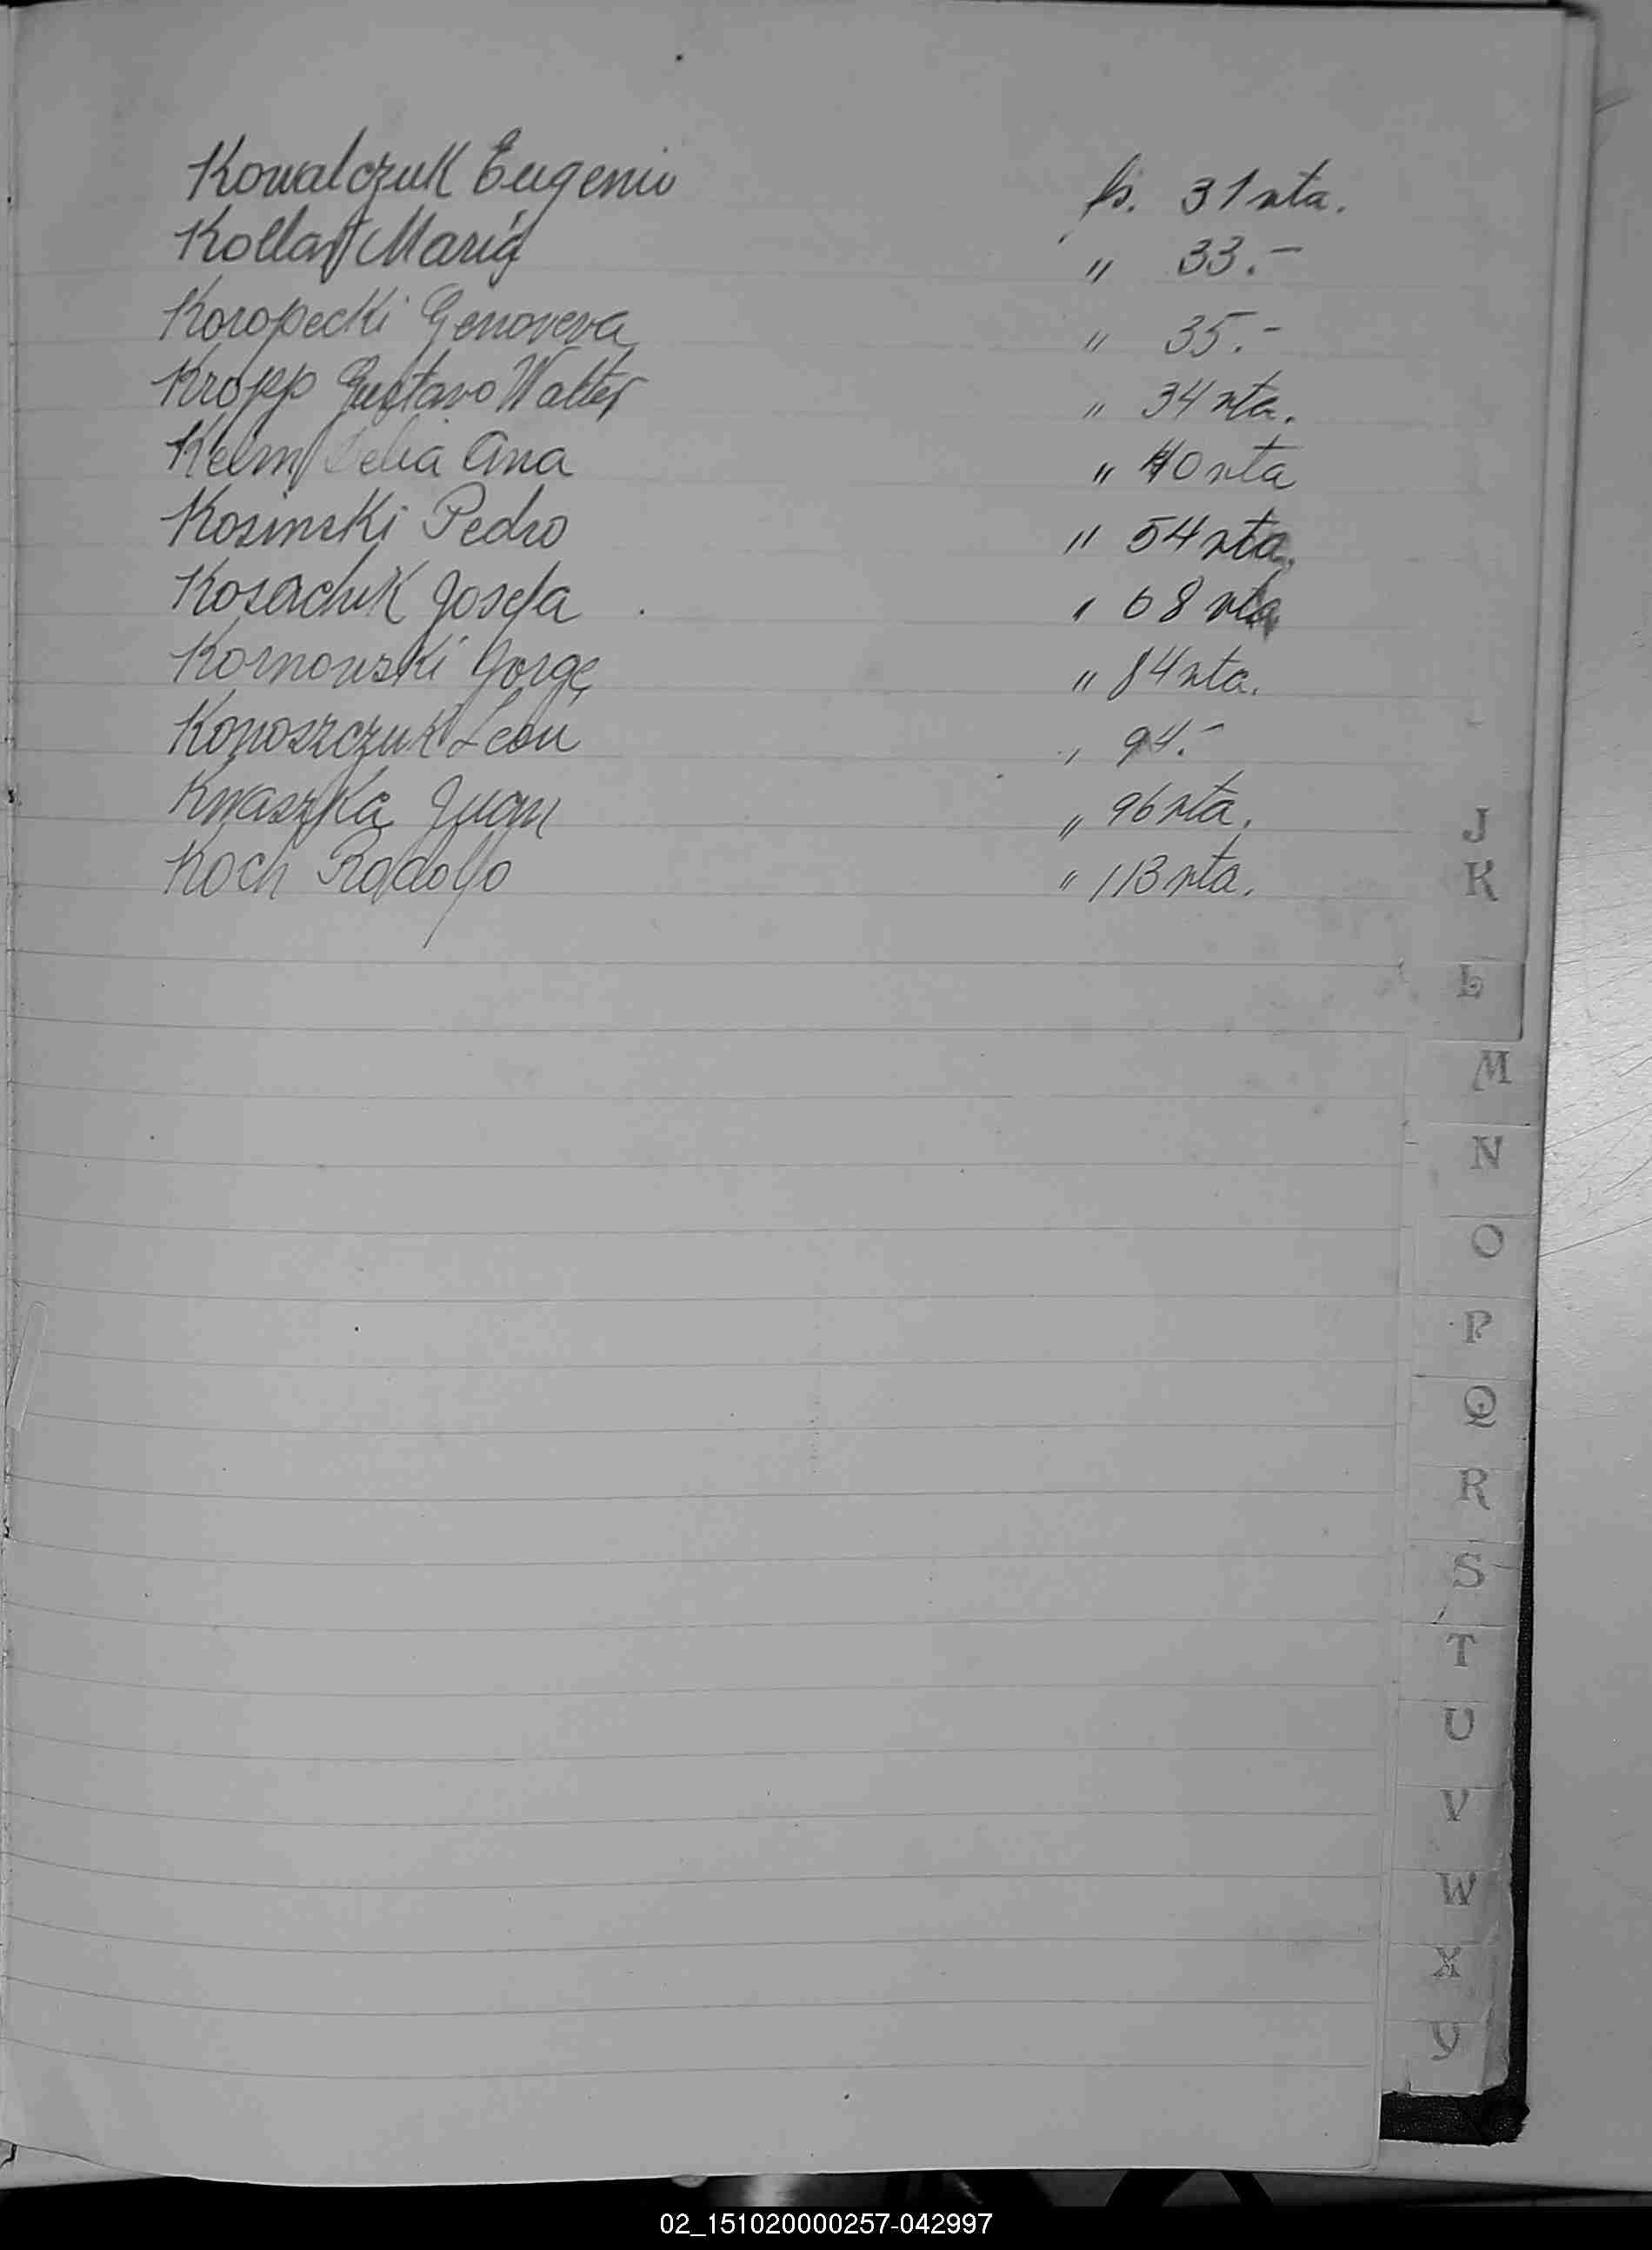 Kowalczuk Eugenio fs. 31 vta.
Kollar Maria " 33.-
Koropecki Genoveva " 35.-
Kropp Gustavo Walter " 34 vta.
Kelm Delia Ana " 40 vta
Kosinski Pedro " 54 vta.
Kosachuk Josefa " 68 vta
Kornowski Jorge " 84 vta.
Konoszczuk León " 94.-
Kwaszka Juan " 96 vta.
Koch Rodolfo " 113 vta.
J
K
L
M
N
O
P
Q
R
S
T
U
V
W
X
Y
02_151020000257-042997